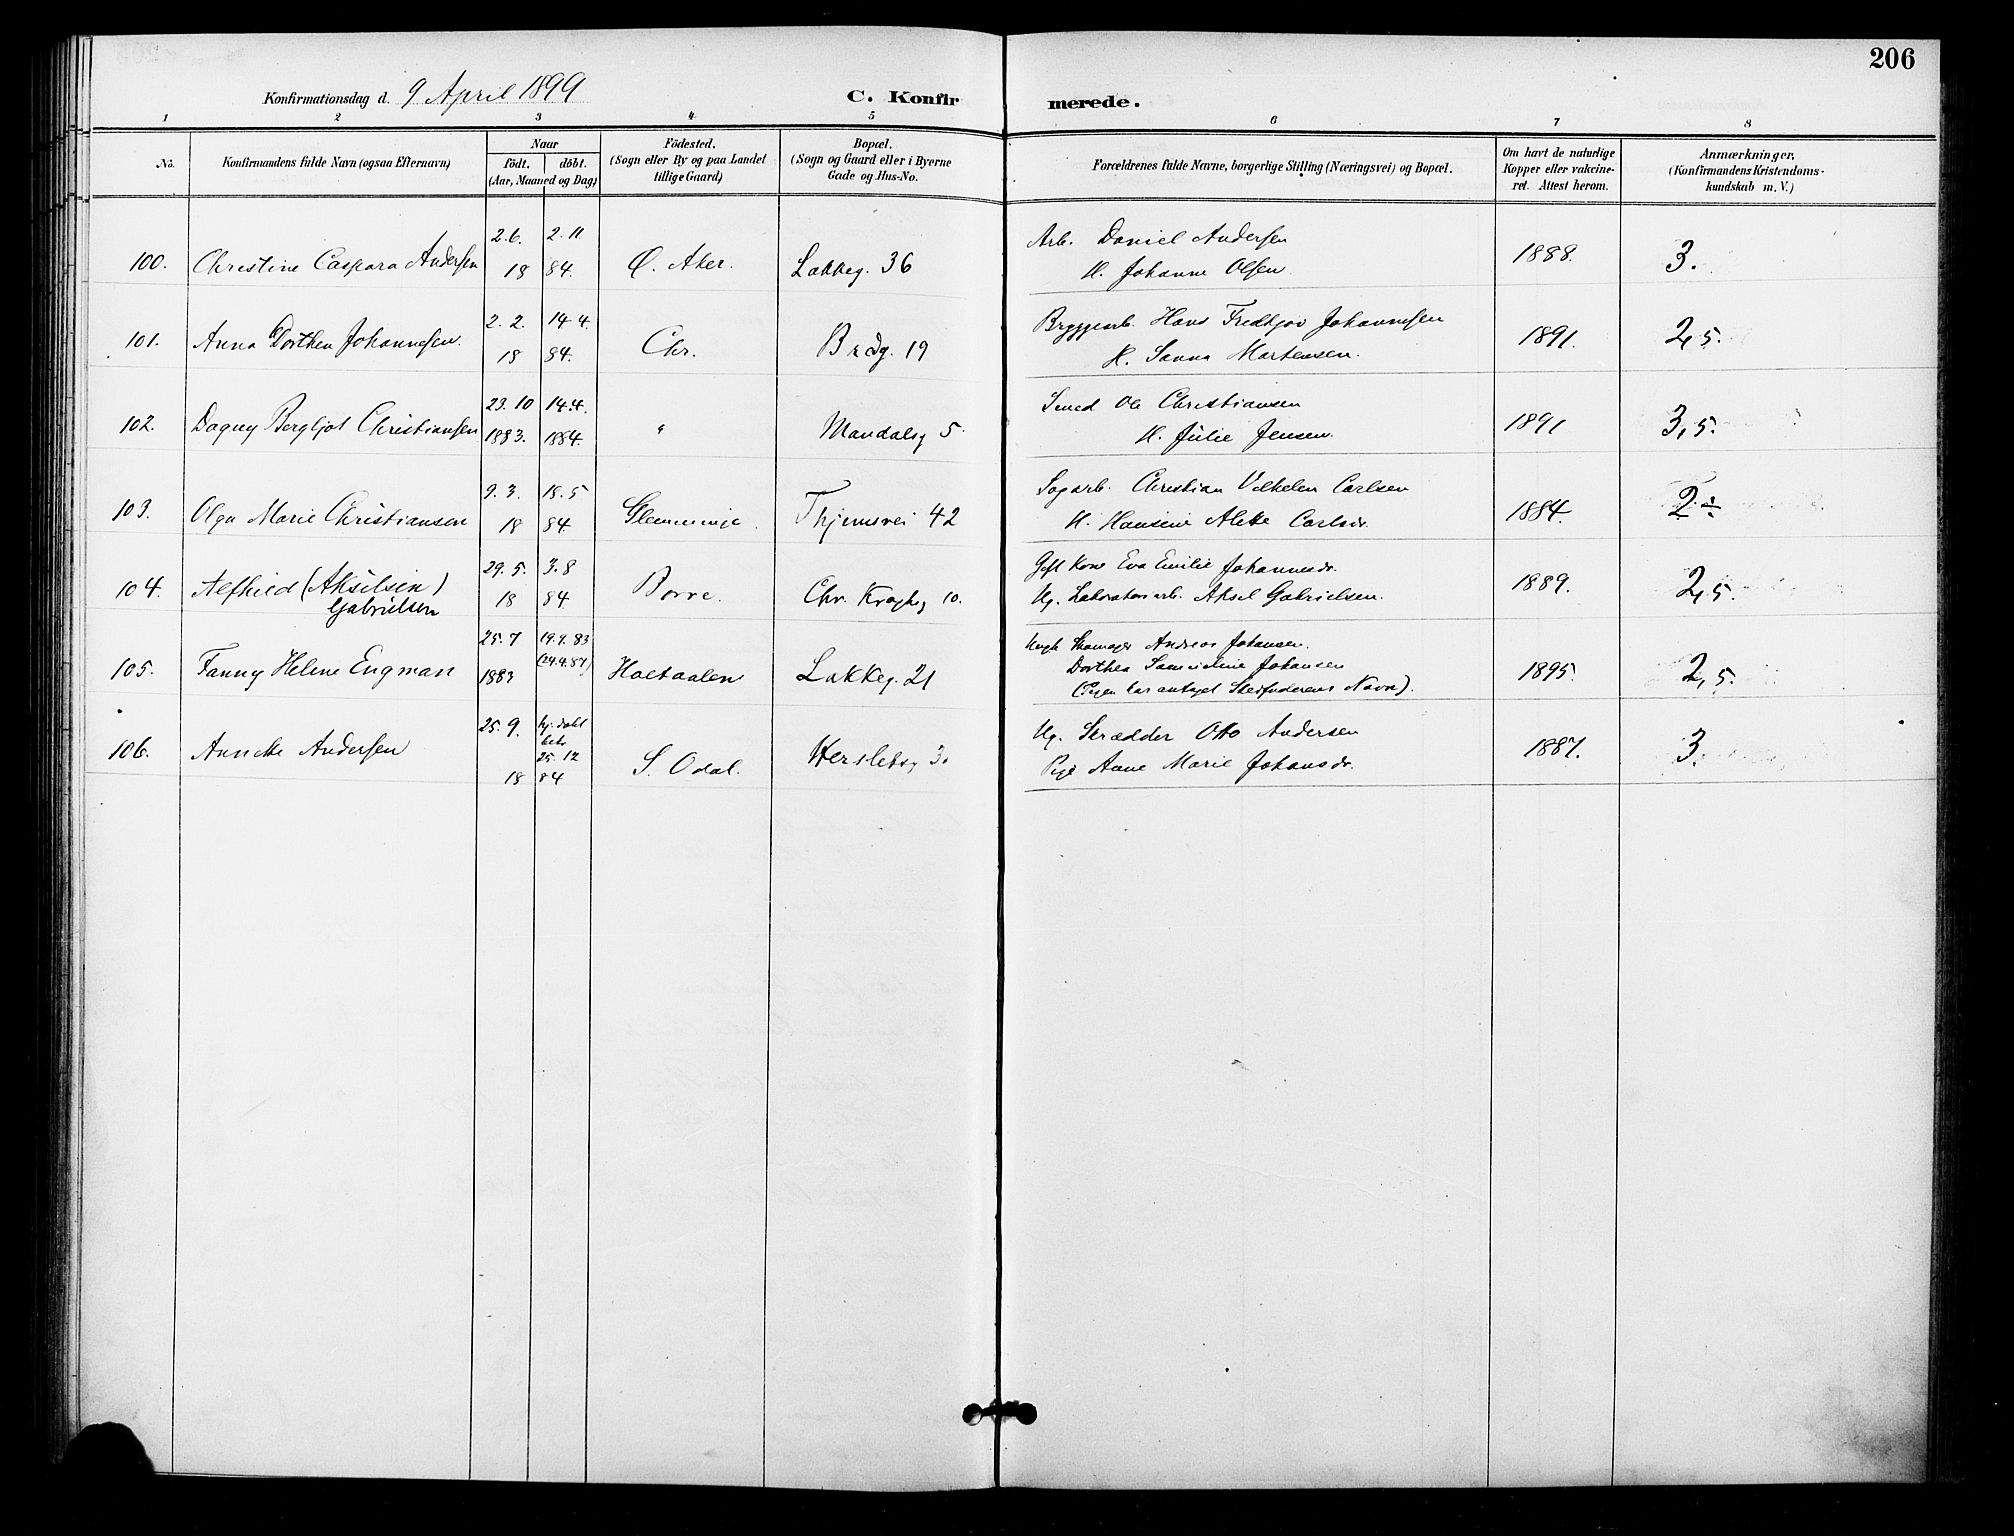 206
Konfirmationsdag d. 9 April 1899
C. Konfirmerede.
1 2 3 4 5 6 7 8
No.
Konfirmandens fulde Navn (ogsaa Efternavn)
Naar
født. døbt.
(Aar, Maaned og Dag)
Födested.
(Sogn eller By og paa Landet
tillige Gaard)
Bopæl.
(Sogn og Gaard eller i Byerne
Gade og Hus-No.
Forældrenes fulde Navne, borgerlige Stilling (Næringsvei) og Bopæl.
Om havt de naturlige
Kopper eller vakcine-
ret. Attest herom.
Anmærkninger,
(Konfirmandens Kristendoms-
kundskab m. V.)
100. Christine Caspara Andersen
2.6. 2.11
18 84.
Ø. Aker.
Lakkeg. 36
Arb. Daniel Andersen
H. Johanne Olsen
1888.
3.
101. Anna Dorthea Johannesen.
2.2. 14.4.
18 84.
Chr.
Bredg. 19
Bryggearb. Hans Fredtjov Johannesen
H. Sanna Martensen.
1891.
2,5.
102. Dagny Bergljot Christiansen
23.10 14.4.
1883. 1884.
"
Mandalsg 5
Smed Ole Christiansen
H. Julie Jensen.
1891
3,5.
103. Olga Marie Christiansen
9.3. 18.5
18 84.
Glemminge.
Thjemsvei 42
Sagarb. Christian Vilhelm Carlsen
H. Hansine Alette Carlsdr.
1884.
2 ÷
104. Alfhild (Akselsen)
Gabrielsen
29.5. 3.8
18 84.
Borre.
Chr. Kroghsg 10.
Gift Kone Eva Emilie Johannesdr.
Ug. Laboratoriearb. Aksel Gabrielsen.
1889.
2,5.
105. Fanny Helene Engman
25.7 19.9.83
(24.4.87)
1883
Holtaalen
Lakkeg. 21
Andreas Johansen.
Dorthea Johansen
(Pigen har antaget Stedfaderens Navn).
1895.
2,5.
106. Annette Andersen
25.9. hj. døbt
bekr
25.12
18 84
S. Odal.
Herslebsg 3.
Ug. Skrædder Otto Andersen
Pige Anne Marie Johansdr.
1887.
3.